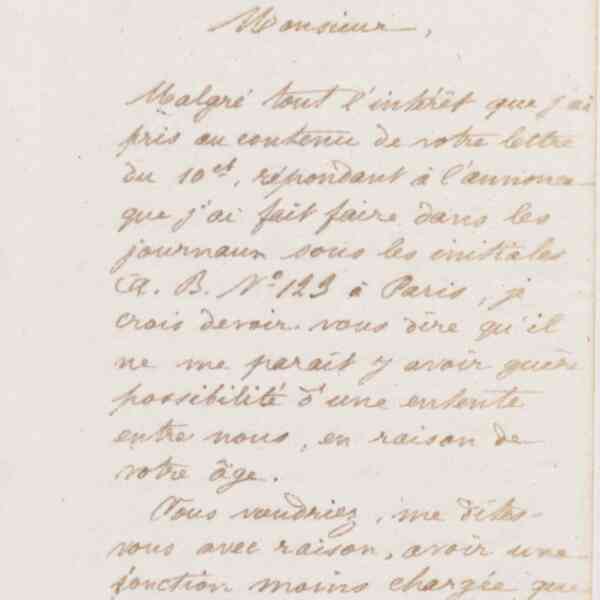 Monsieur,
Malgré tout l'intérêt que j'ai
pris au contenu de votre lettre
du 10 ct, répondant à l'annonce
que j'ai fait faire dans les
journaux sous les initiales
A. B. Nº 123 à Paris, je
crois devoir vous dire qu'il
ne me paraît y avoir guère
possibilité d'une entente
entre nous, en raison de
votre âge.
Vous voudriez, me dites-
vous avec raison, avoir une
fonction moins chargée que